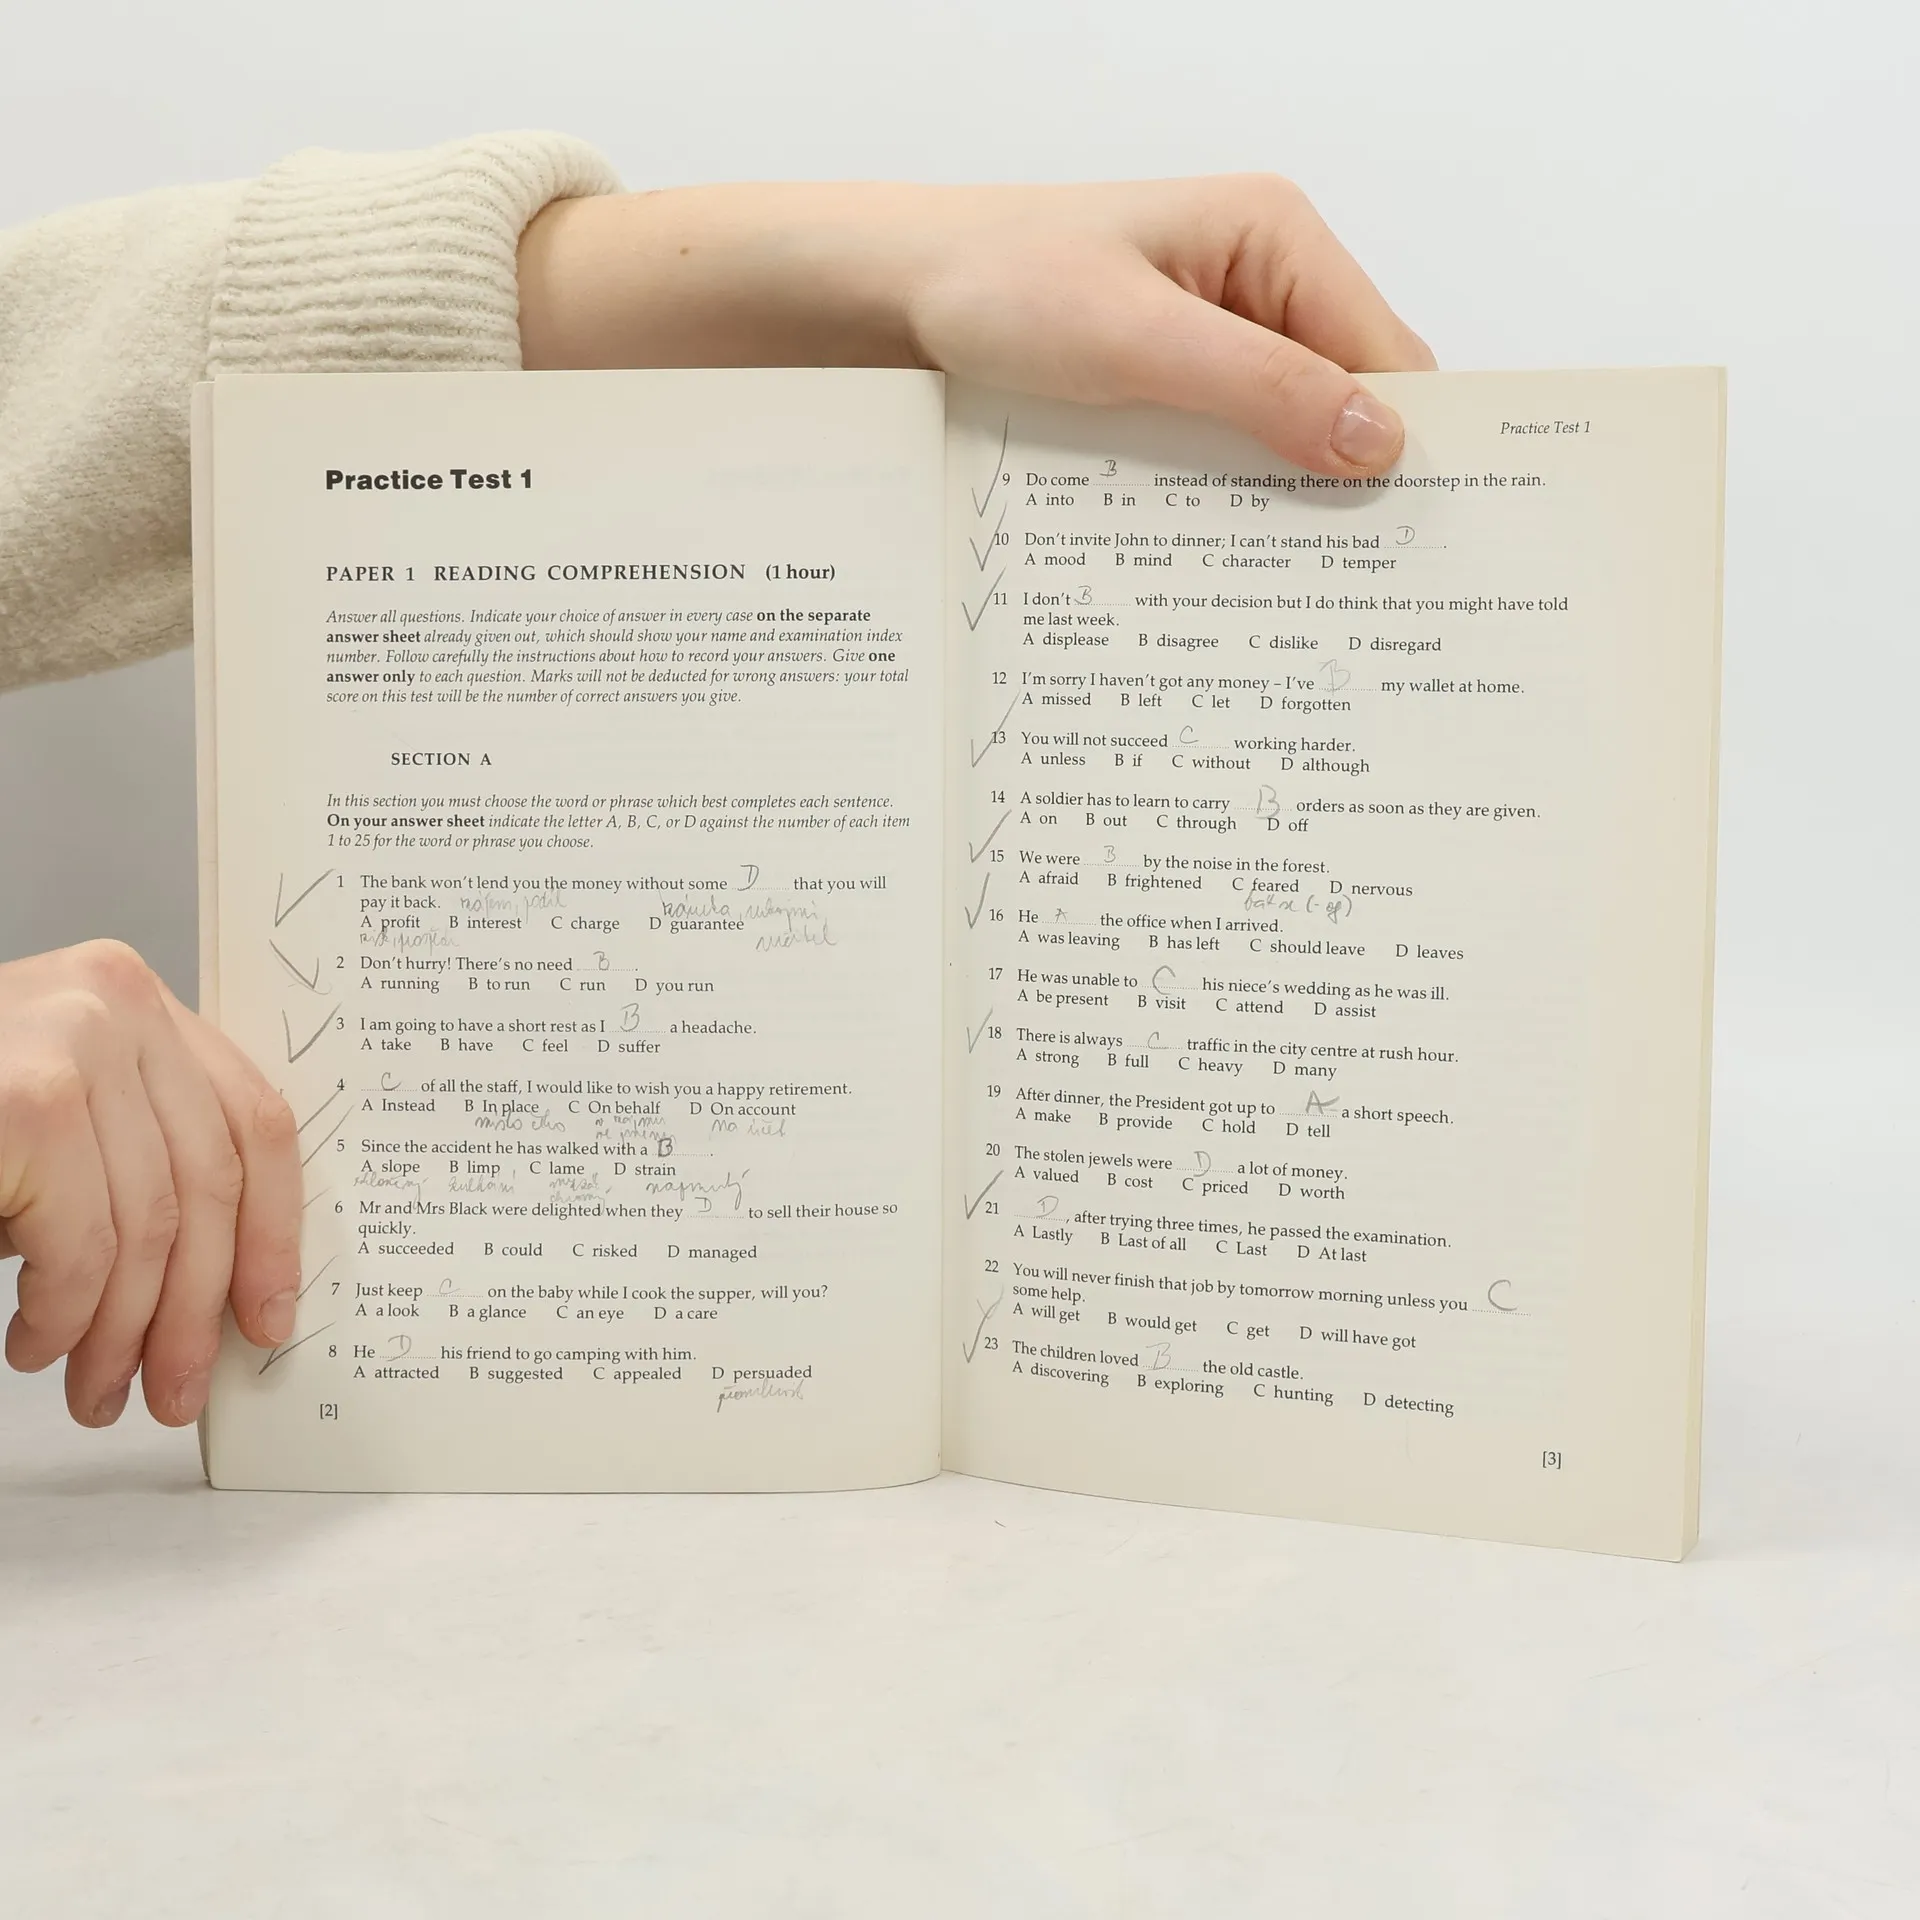 Practice Test 1
PAPER 1 READING COMPREHENSION (1 hour)
Answer all questions. Indicate your choice of answer in every case on the separate
answer sheet already given out, which should show your name and examination index
number. Follow carefully the instructions about how to record your answers. Give one
answer only to each question. Marks will not be deducted for wrong answers: your total
score on this test will be the number of correct answers you give.
SECTION A
In this section you must choose the word or phrase which best completes each sentence.
On your answer sheet indicate the letter A, B, C, or D against the number of each item
1 to 25 for the word or phrase you choose.
1 The bank won't lend you the money without some D that you will
pay it back.
A profit B interest C charge D guarantee
2 Don't hurry! There's no need B .
A running B to run C run D you run
3 I am going to have a short rest as I B a headache.
A take B have C feel D suffer
4 C of all the staff, I would like to wish you a happy retirement.
A Instead B In place C On behalf D On account
na účet
5 Since the accident he has walked with a B .
A slope B limp C lame D strain
6 Mr and Mrs Black were delighted when they D to sell their house so
quickly.
A succeeded B could C risked D managed
7 Just keep C on the baby while I cook the supper, will you?
A a look B a glance C an eye D a care
8 He D his friend to go camping with him.
A attracted B suggested C appealed D persuaded
[2]
Practice Test 1
9 Do come B instead of standing there on the doorstep in the rain.
A into B in C to D by
10 Don't invite John to dinner; I can't stand his bad D .
A mood B mind C character D temper
11 I don't B with your decision but I do think that you might have told
me last week.
A displease B disagree C dislike D disregard
12 I'm sorry I haven't got any money – I've B my wallet at home.
A missed B left C let D forgotten
13 You will not succeed C working harder.
A unless B if C without D although
14 A soldier has to learn to carry B orders as soon as they are given.
A on B out C through D off
15 We were B by the noise in the forest.
A afraid B frightened C feared D nervous
16 He A the office when I arrived.
A was leaving B has left C should leave D leaves
17 He was unable to C his niece's wedding as he was ill.
A be present B visit C attend D assist
18 There is always C traffic in the city centre at rush hour.
A strong B full C heavy D many
19 After dinner, the President got up to A a short speech.
A make B provide C hold D tell
20 The stolen jewels were D a lot of money.
A valued B cost C priced D worth
21 D , after trying three times, he passed the examination.
A Lastly B Last of all C Last D At last
22 You will never finish that job by tomorrow morning unless you C
some help.
A will get B would get C get D will have got
23 The children loved B the old castle.
A discovering B exploring C hunting D detecting
[3]